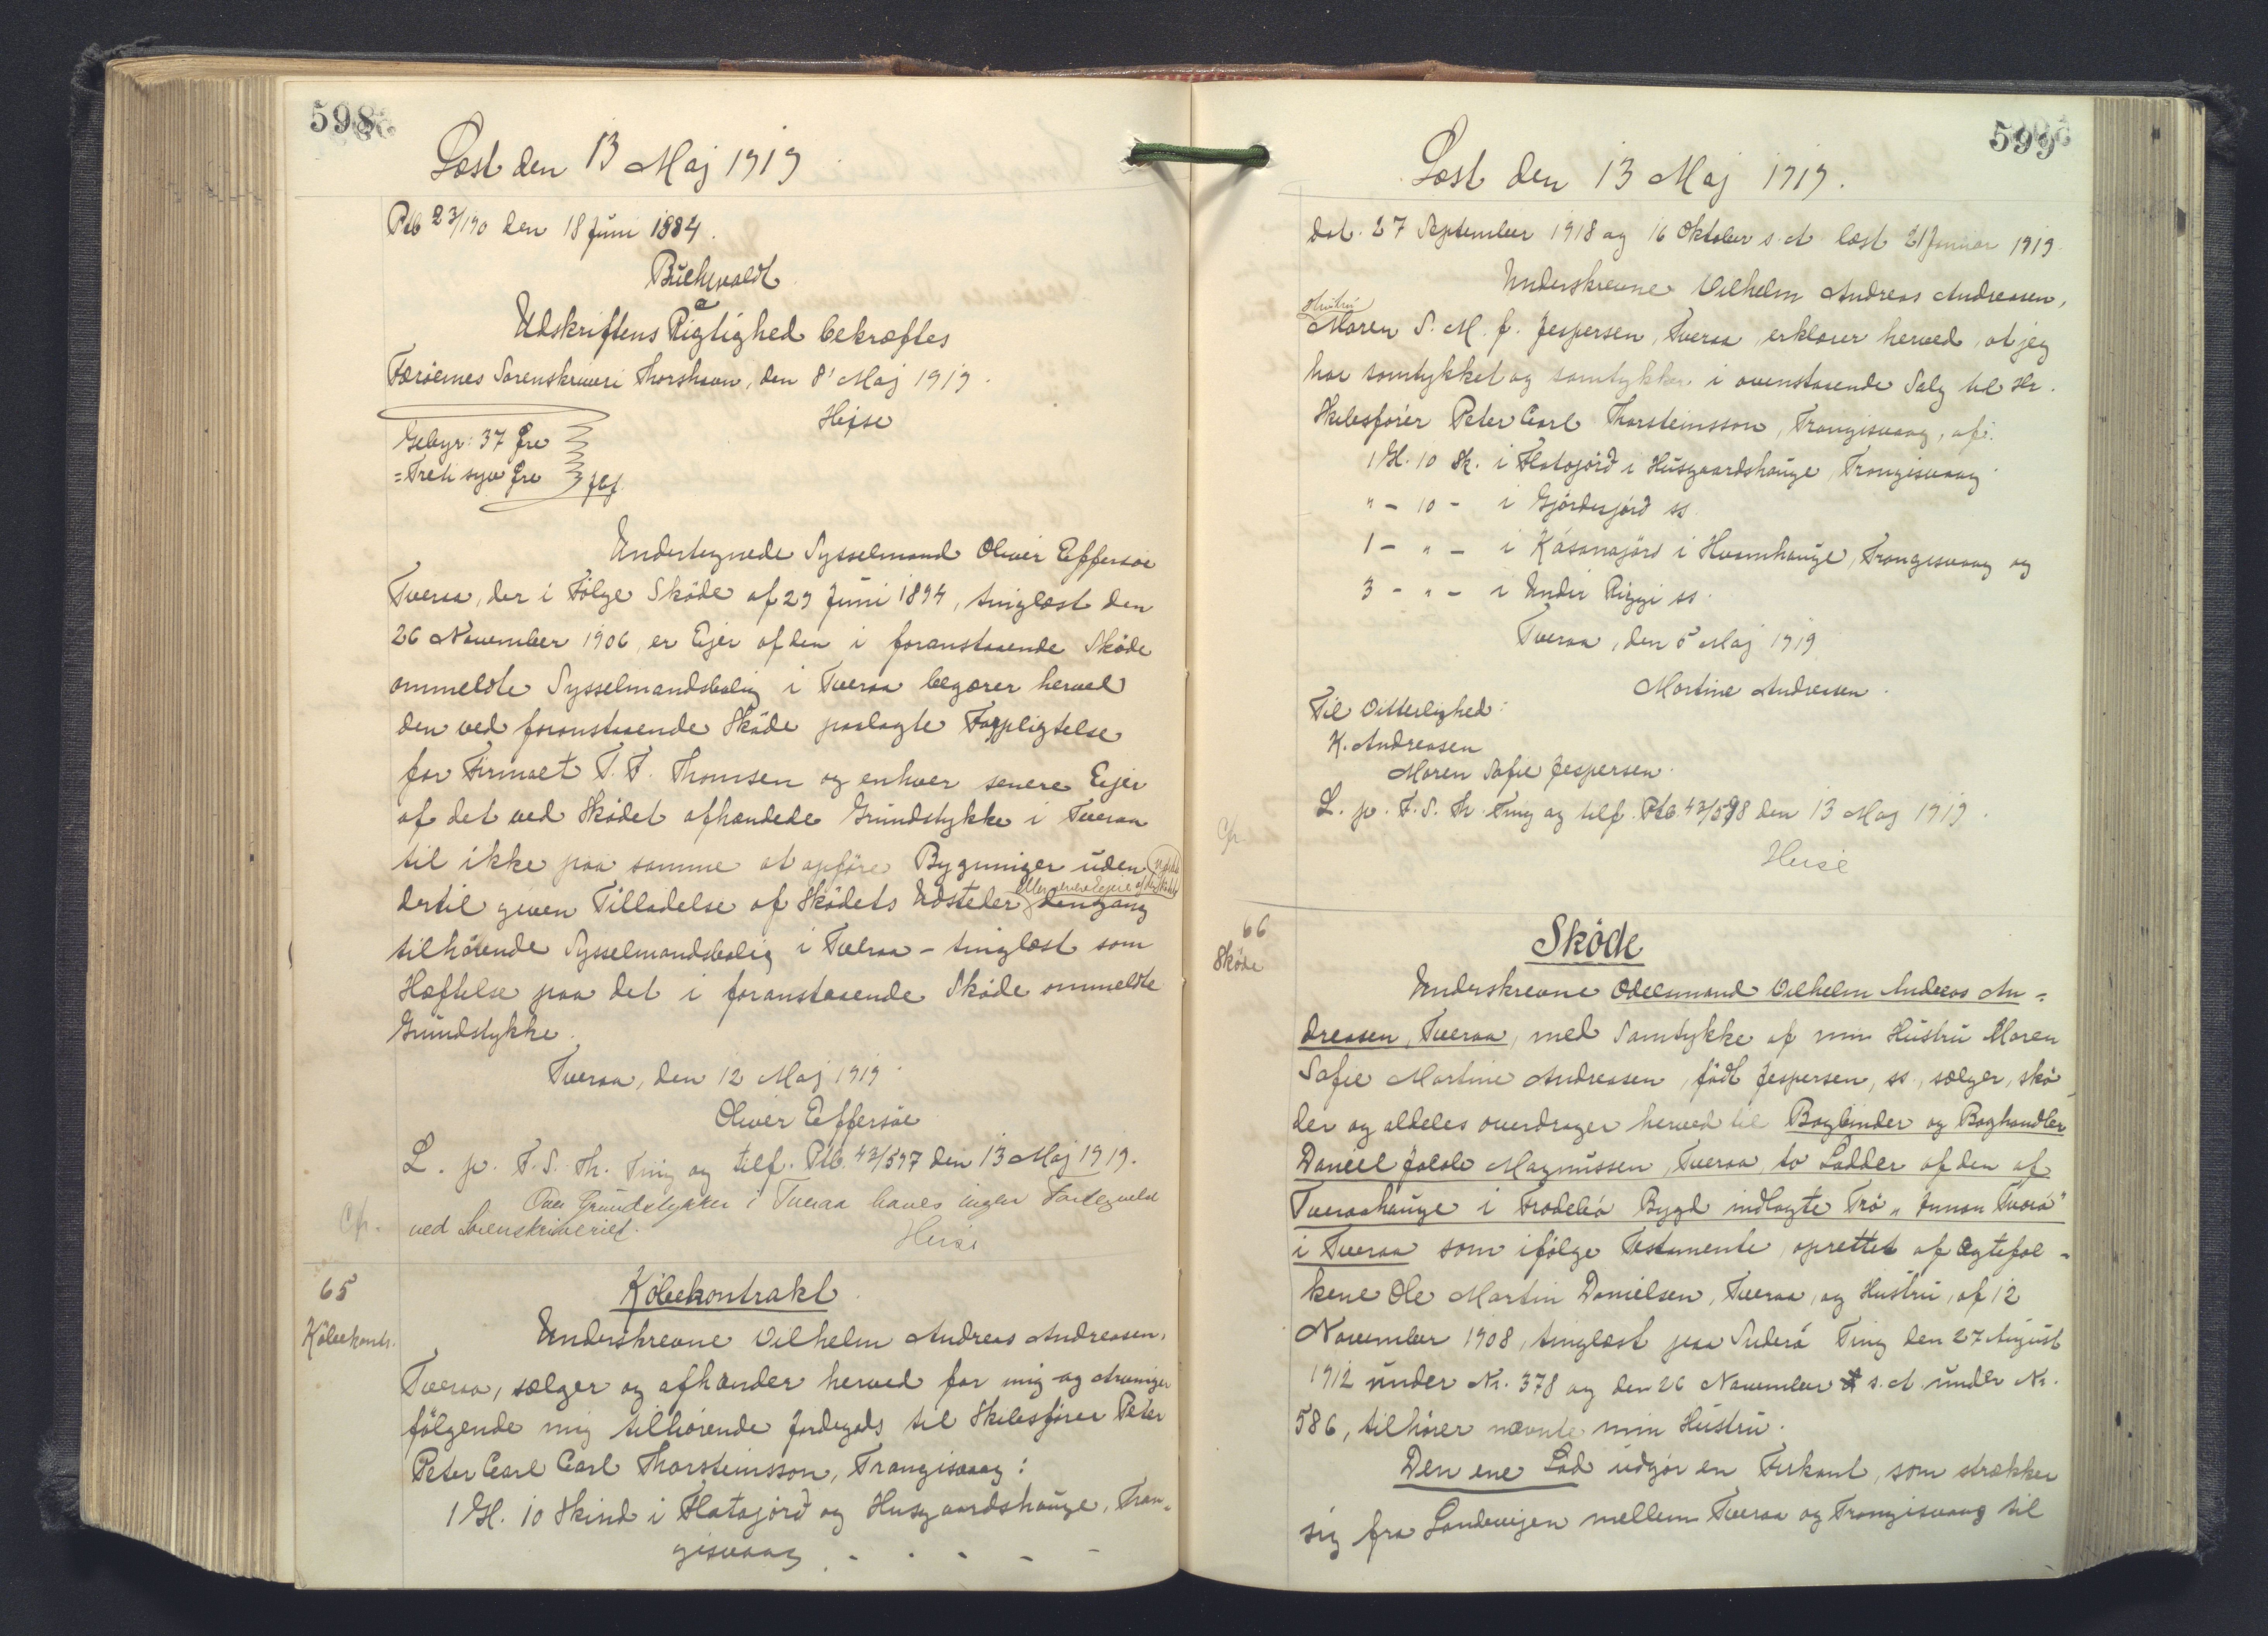 598
Læst den 13 Maj 1919
Ptb 23/190 den 18 Juni 1884.
Buchwaldt
Udskriftens Rigtighed bekræftes
Færöernes Sorenskriveri Thorshavn, den 8' Maj 1919.
Heise
Gebyr: 37 Øre
= Treti syv Øre
Undertegnede Sysselmand Oliver Effersöe
Tveraa, der i Fölge Sköde af 29 Juni 1894, tinglæst den
26 November 1906, er Ejer af den i foranstaaende Sköde
ommeldte Sysselmandsbolig i Tveraa begærer herved
den ved foranstaaende Sköde paalagte Forpligtelse
for Firmaet T. F. Thomsen og enhver senere Ejer
af det ved Sködet afhændede Grundstykke i Tveraa
til ikke paa samme at opföre Bygninger uden
eller senere Ejere af den Sködets
dertil given Tilladelse af Sködets Udsteder dengang
tilhörende Sysselmandsbolig i Tveraa - tinglæst som
Hæftelse paa det i foranstaaende Sköde ommeldte
Grundstykke.
Tveraa, den 12 Maj 1919.
Oliver Effersöe
L. p. F. S. Th. Ting og tilf. Ptb. 43/597 den 13 Maj 1919.
Over Grundstykker i Tveraa haves ingen Fortegnelse
Cfr. ved Sorenskriveriet.
Heise
65
Köbekontrakt.
Köbekontr.
Underskrevne Vilhelm Andreas Andreasen,
Tveraa, sælger og afhænder herved for mig og Arvinger
fölgende mig tilhörende Jordegods til Skibsförer Peter
Peter Carl Carl Thorsteinsson, Trangisvaag:
1 Gl. 10 Skind i Flatajörd og Husgaardshauge, Tran-
gisvaag - - - - -
599
Læst den 13 Maj 1919.
Dat. 27 September 1918 og 16 Oktober s. A. læst 21 Januar 1919.
Underskrevne Vilhelm Andreas Andreasen,
Hustru
Maren S. M. f. Jespersen, Tveraa, erklærer herved, at jeg
har samtykket og samtykker i ovenstaaende Salg til Hr.
Skibsförer Peter Carl Thorsteinsson, Trangisvaag, af:
1 Gl. 10 Sk. i Flatajörd i Husgaardshauge, Trangisvaag
" - 10 - i Gjördisjörd ss.
1 - " - i Kásanajörd i Hvamhauge, Trangisvaag og
3 - " - i Undir Riggi ss.
Tveraa, den 5 Maj 1919
Martine Andreasen.
Til Vitterlighed:
K. Andreasen
Maren Sofie Jespersen.
L. p. F. S. Th. Ting og tilf. Ptb. 43/598 den 13 Maj 1919.
Cfr.
Heise
66
Sköde
Sköde
Underskrevne Odelsmand Vilhelm Andreas An-
dreasen, Tveraa, med Samtykke af min Hustru Maren
Sofie Martine Andreasen, födt Jespersen, ss., sælger, skö
der og aldeles overdrager herved til Bogbinder og Boghandler
Daniel Jakob Magnussen, Tveraa, to Lodder af den af
Tveraahauge i Frodebö Bygd indlagte Trö „Innan Tvörá"
i Tveraa som ifölge Testamente, oprettet af Ægtefol-
kene Ole Martin Danielsen, Tveraa, og Hustru, af 12
November 1908, tinglæst paa Suderö Ting den 27 August
1912 under Nr. 378 og den 26 November s. A. under Nr.
586, tilhörer nævnte min Hustru.
Den ene Lod udgör en Firkant, som strækker
sig fra Landevejen mellem Tveraa og Trangisvaag til